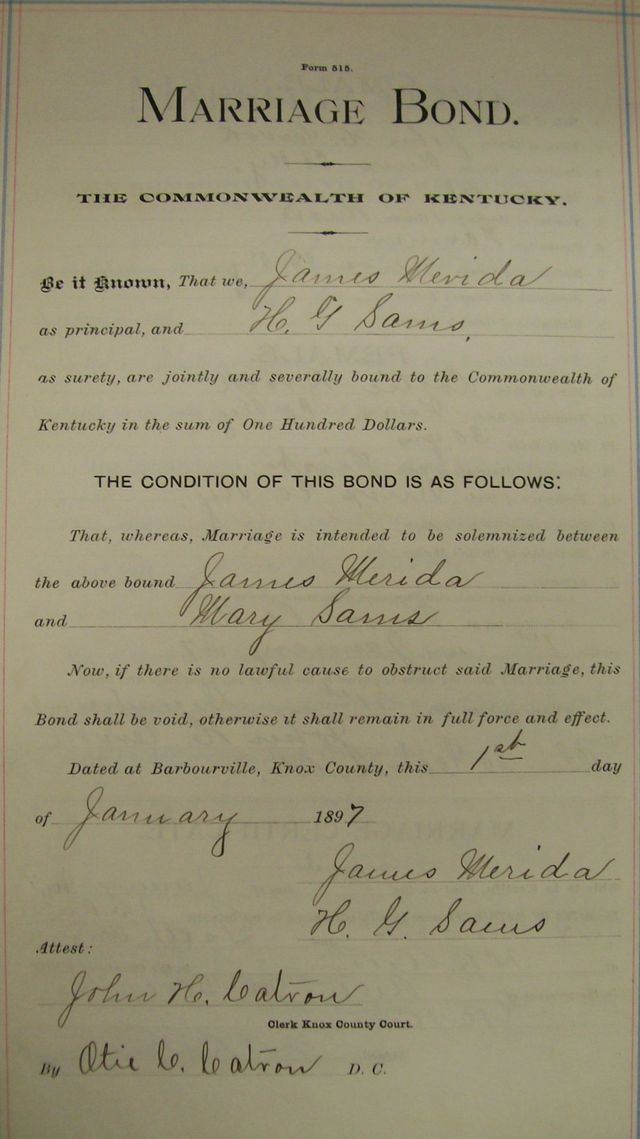 Form 515.
MARRIAGE BOND.
THE COMMONWEALTH OF KENTUCKY.
Be it Known, That we, James Merida
as principal, and H. G Sams,
as surety, are jointly and severally bound to the Commonwealth of
Kentucky in the sum of One Hundred Dollars.
THE CONDITION OF THIS BOND IS AS FOLLOWS:
That, whereas, Marriage is intended to be solemnized between
the above bound James Merida
and Mary Sams
Now, if there is no lawful cause to obstruct said Marriage, this
Bond shall be void, otherwise it shall remain in full force and effect.
Dated at Barbourville, Knox County, this 1st day
of January 1897
James Merida
H. G. Sams
Attest:
John H. Catron
Clerk Knox County Court.
By Otie C. Catron D. C.